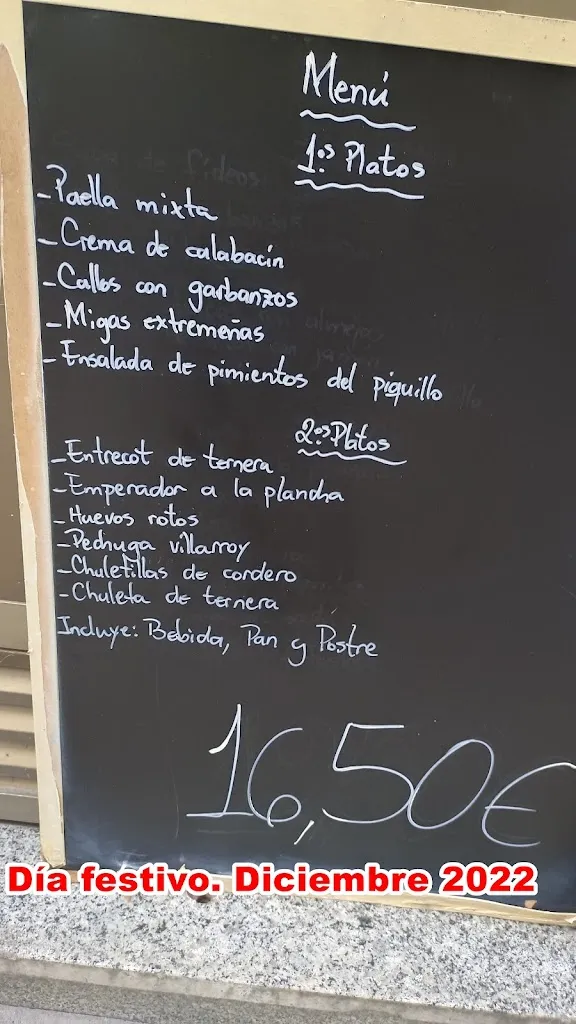 Menú
1.os Platos
- Paella mixta
- Crema de calabacín
- Callos con garbanzos
- Migas extremeñas
- Ensalada de pimientos del piquillo
2.os Platos
- Entrecot de ternera
- Emperador a la plancha
- Huevos rotos
- Pechuga villarroy
- Chuletillas de cordero
- Chuleta de ternera
Incluye: Bebida, Pan y Postre
16,50€
Día festivo. Diciembre 2022